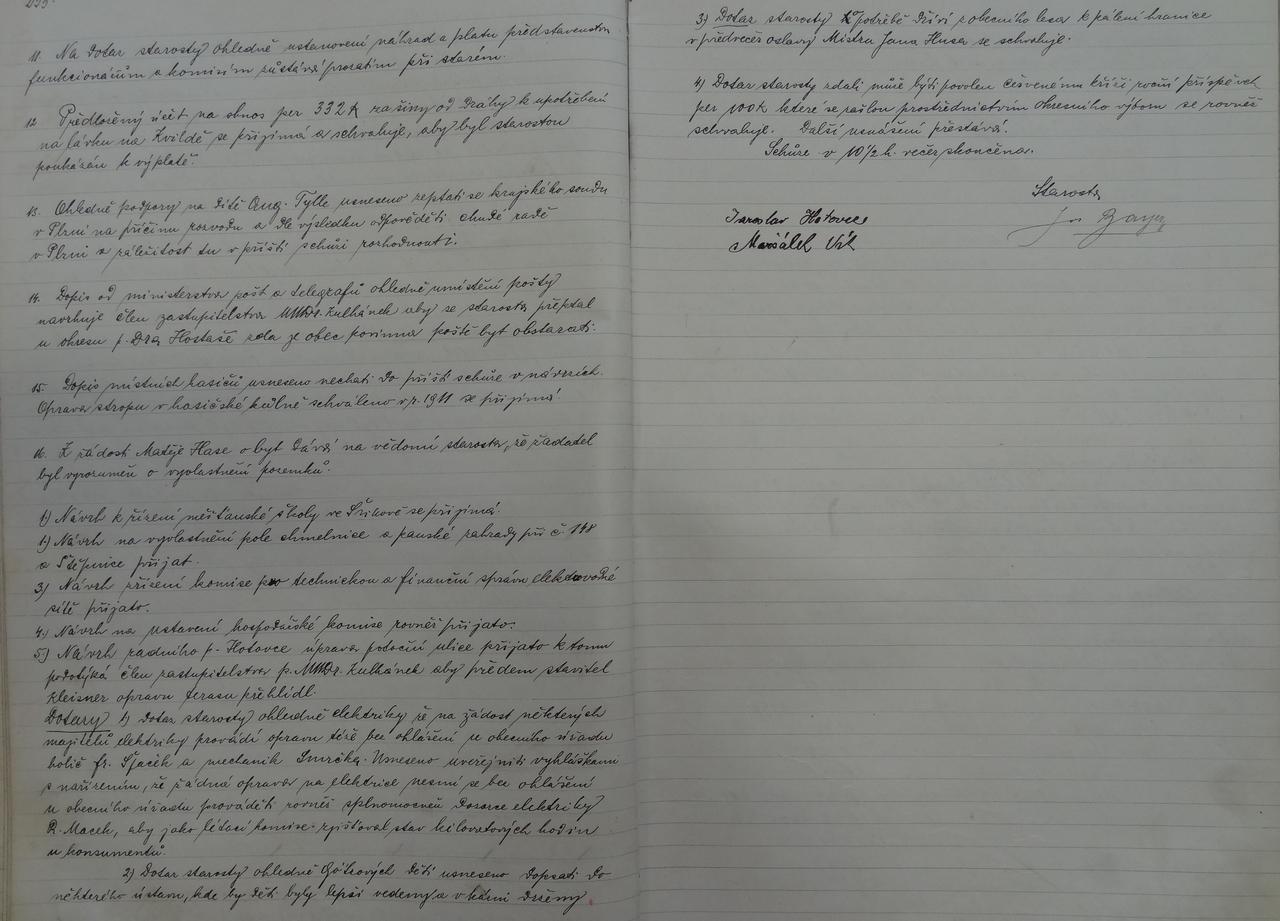 11. Na dotaz starosty ohledně ustanovení náhrad a platu představenstva
funkcionářům a komisím zůstává prozatím při starém.
12 Předložený účet na obnos per 332 K za šiny od dráhy k upotřebení
na lávku na Kvildě se přijímá a schvaluje, aby byl starostou
poukázán k výplatě.
13. Ohledně podpory na dítě Aug. Tylle usneseno zeptati se krajského soudu
v Plzni na příčinu rozvodu a dle výsledku odpověděti chudé radě
v Plzni a záležitost tu v příští schůzi rozhodnouti.
14. Dopis od ministerstva pošt a telegrafů ohledně umístění pošty
navrhuje člen zastupitelstva MUDr. Kulhánek aby se starosta přeptal
u okresu p. Dra Hostaše zda je obec povinna poště byt obstarati.
15. Dopis místních hasičů usneseno nechati do příští schůze v návrzích.
Oprava stropu v hasičské kůlně schváleno v r. 1911 se přijímá.
16. K žádosti Matěje Hase o byt dává na vědomí starosta, že žadatel
byl vyrozuměn o vyvlastnění pozemků.
1) Návrh k řízení měšťanské školy ve se přijímá.
1.) Návrh na vyvlastnění pole chmelnice a panské zahrady při č. 148
a Štěpnice přijat.
3) Návrh zřízení komise pro technickou a finanční správu elektrovodné
sítě přijato.
4.) Návrh na ustavení hospodářské komise rovněž přijato.
5.) Návrh radního p. Hotovce úprava potoční ulice přijato k tomu
podotýká člen zastupitelstva p. MUDr. Kulhánek aby předem stavitel
Kleisner opravu terasu přehlídl.
Dotazy 1) Dotaz starosty ohledně elektriky že na žádost některých
majitelů elektriky provádí opravu též bez ohlášení u obecního úřadu
holič fr. Špaček a mechanik Smrčka. Usneseno uveřejniti vyhláškami
s nařízením, že žádná oprava na elektrice nesmí se bez ohlášení
u obecního úřadu prováděti rovněž splnomocněn dozorce elektriky
R. Macek, aby jako létací komise zjišťoval stav kilovatových hodin
u konsumentů.
2) Dotaz starosty ohledně dětí usneseno dopsati do
některého ústavu, kde by děti byly lepší vedeny a v kázni drženy
3) Dotaz starosty ku potřebě dříví z obecního lesa k pálení hranice
v předvečer oslavy Mistra Jana Husa se schvaluje.
4) Dotaz starosty zdali může býti povolen červenému kříži roční příspěvek
per 100 K které se zašlou prostřednictvím okresního výboru se rovněž
schvaluje. Další usnášení přestává.
Schůze v 10 1/2 h. večer skončena.
Starosta
Jaroslav Hotovec
Maršálek Vít